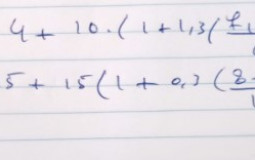 4 + 10.(1+1,3(
5 + 15(1 + 0,3(8